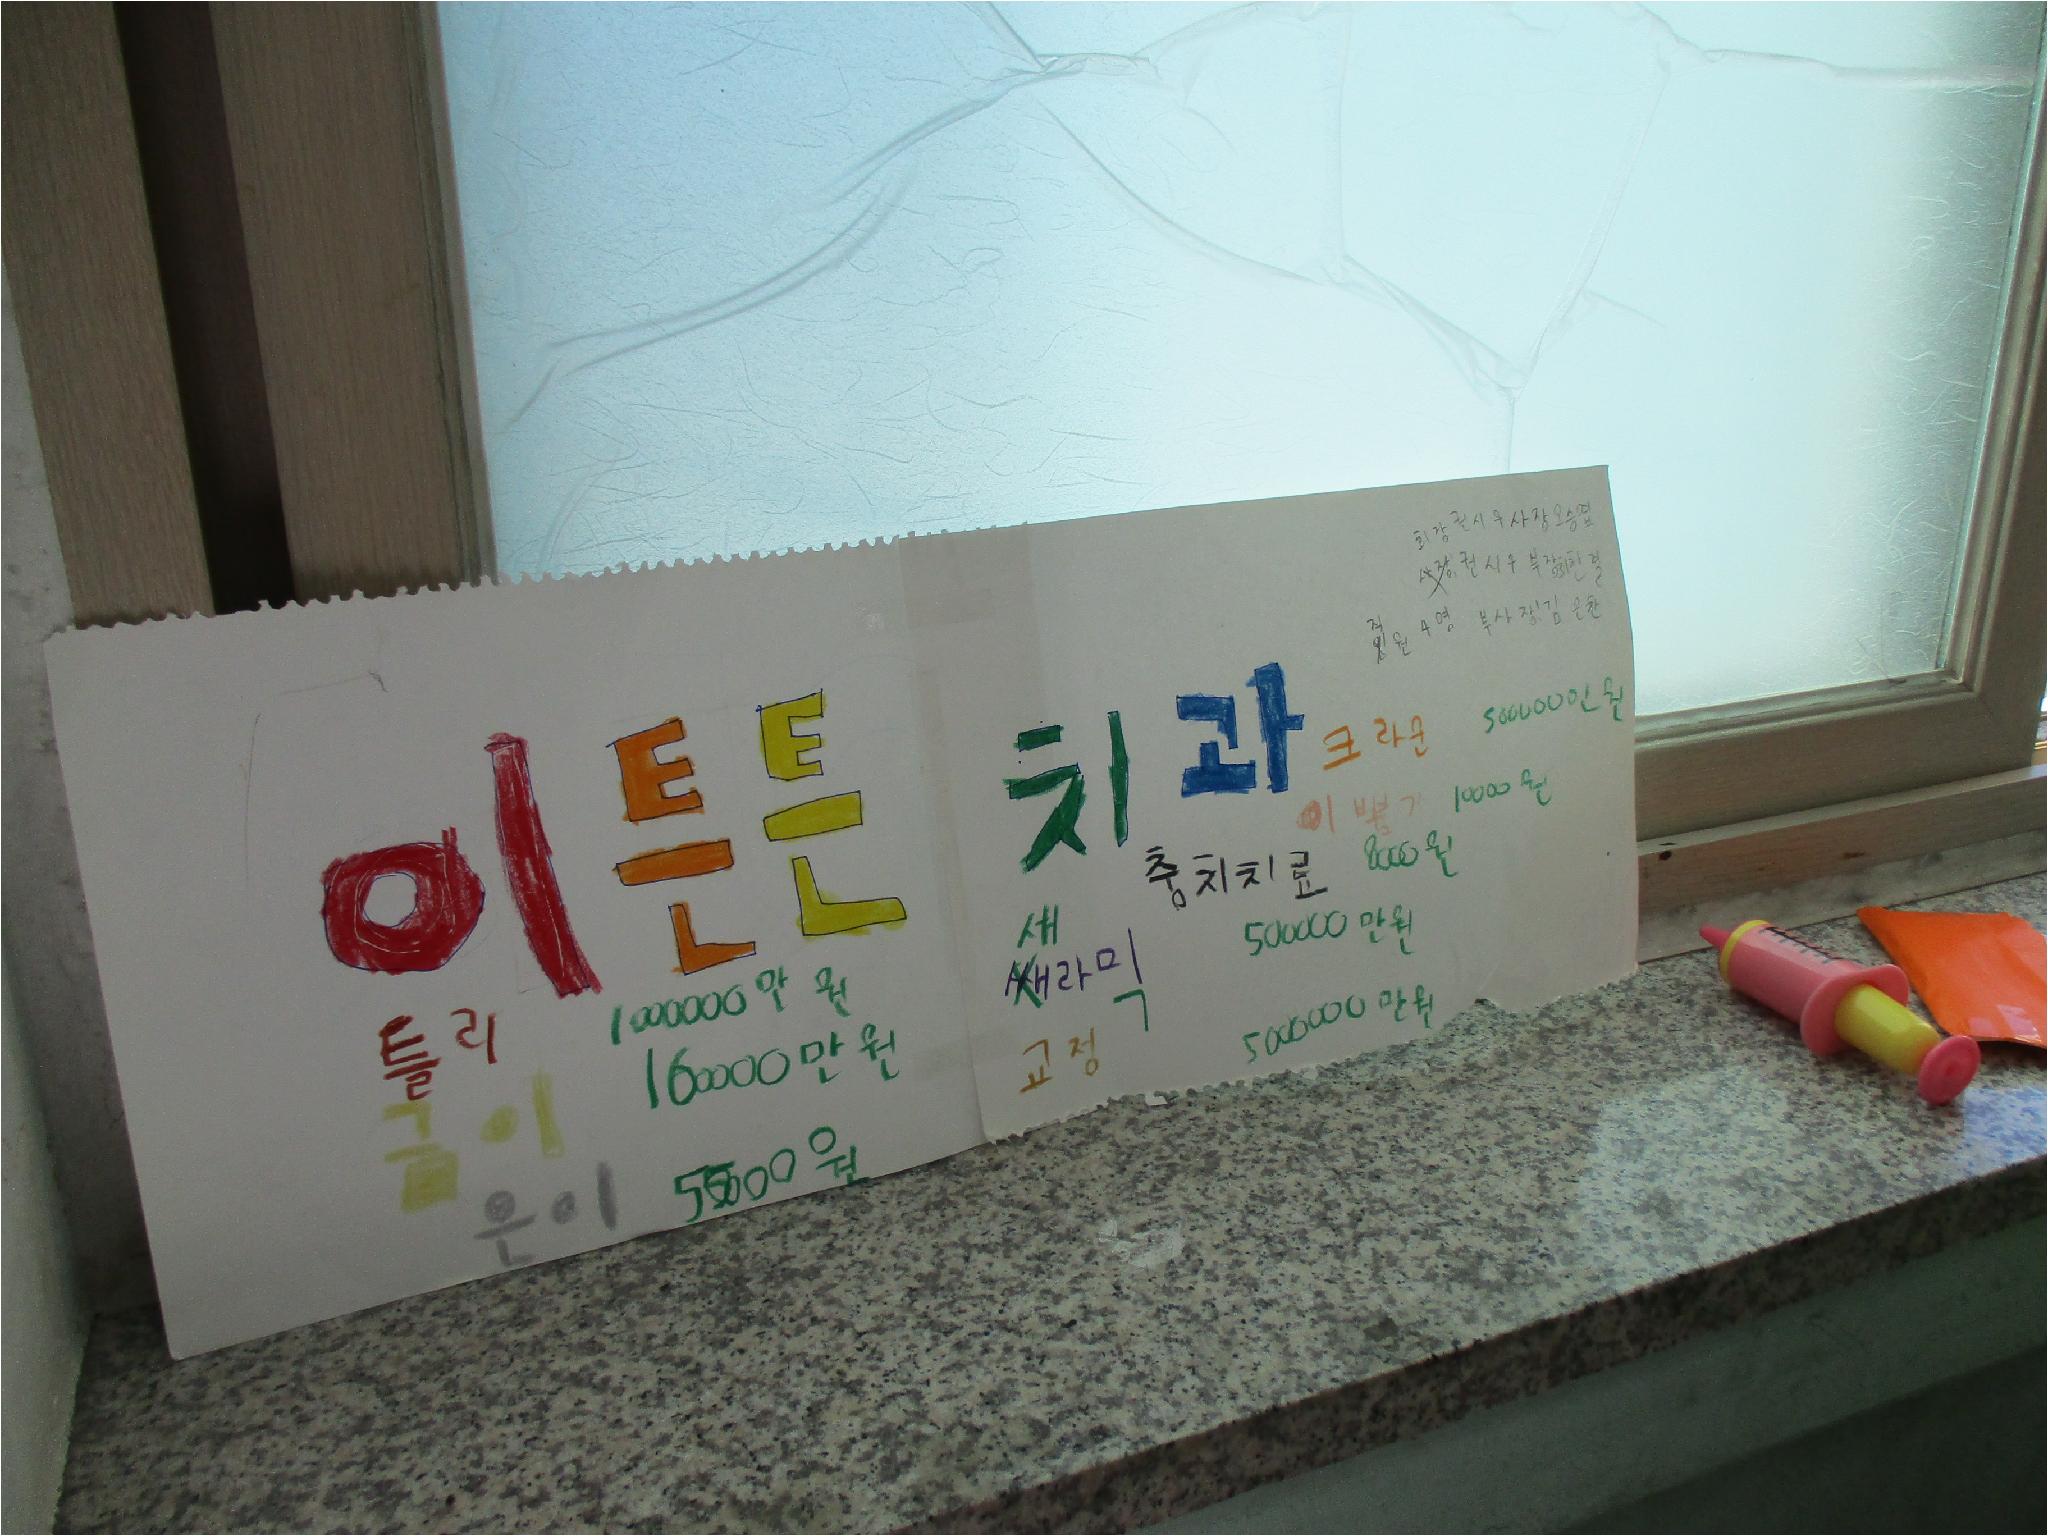 회장 권시우 사장 오승엽
사장 권시우 부장
직원 4명 부사장 김은찬
이튼튼 치과
크라운 500000만원
이 뽑기 10000원
충치치료 8000원
새
쌔라믹 500000만원
교정 5000000만원
틀리 1000000만 원
금이 160000만원
은이 원